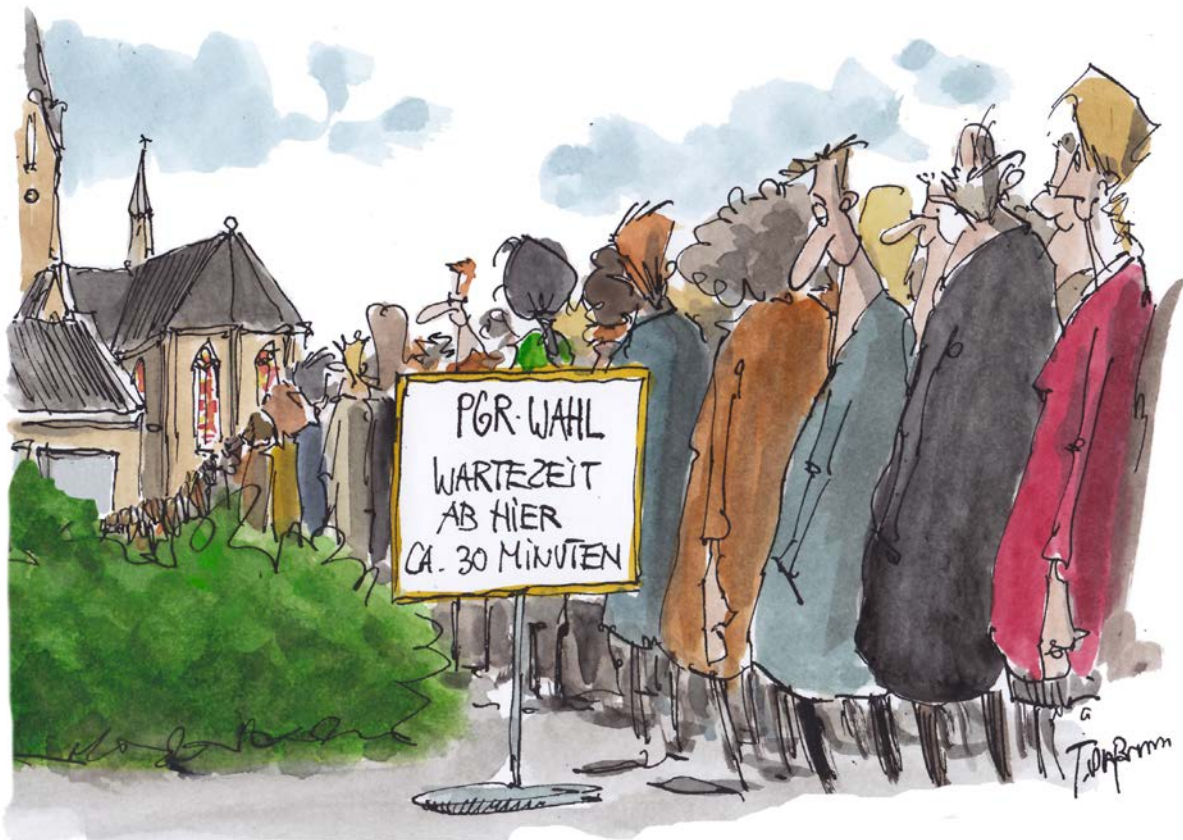 PGR-WAHL
WARTEZEIT
AB HIER
CA. 30 MINUTEN